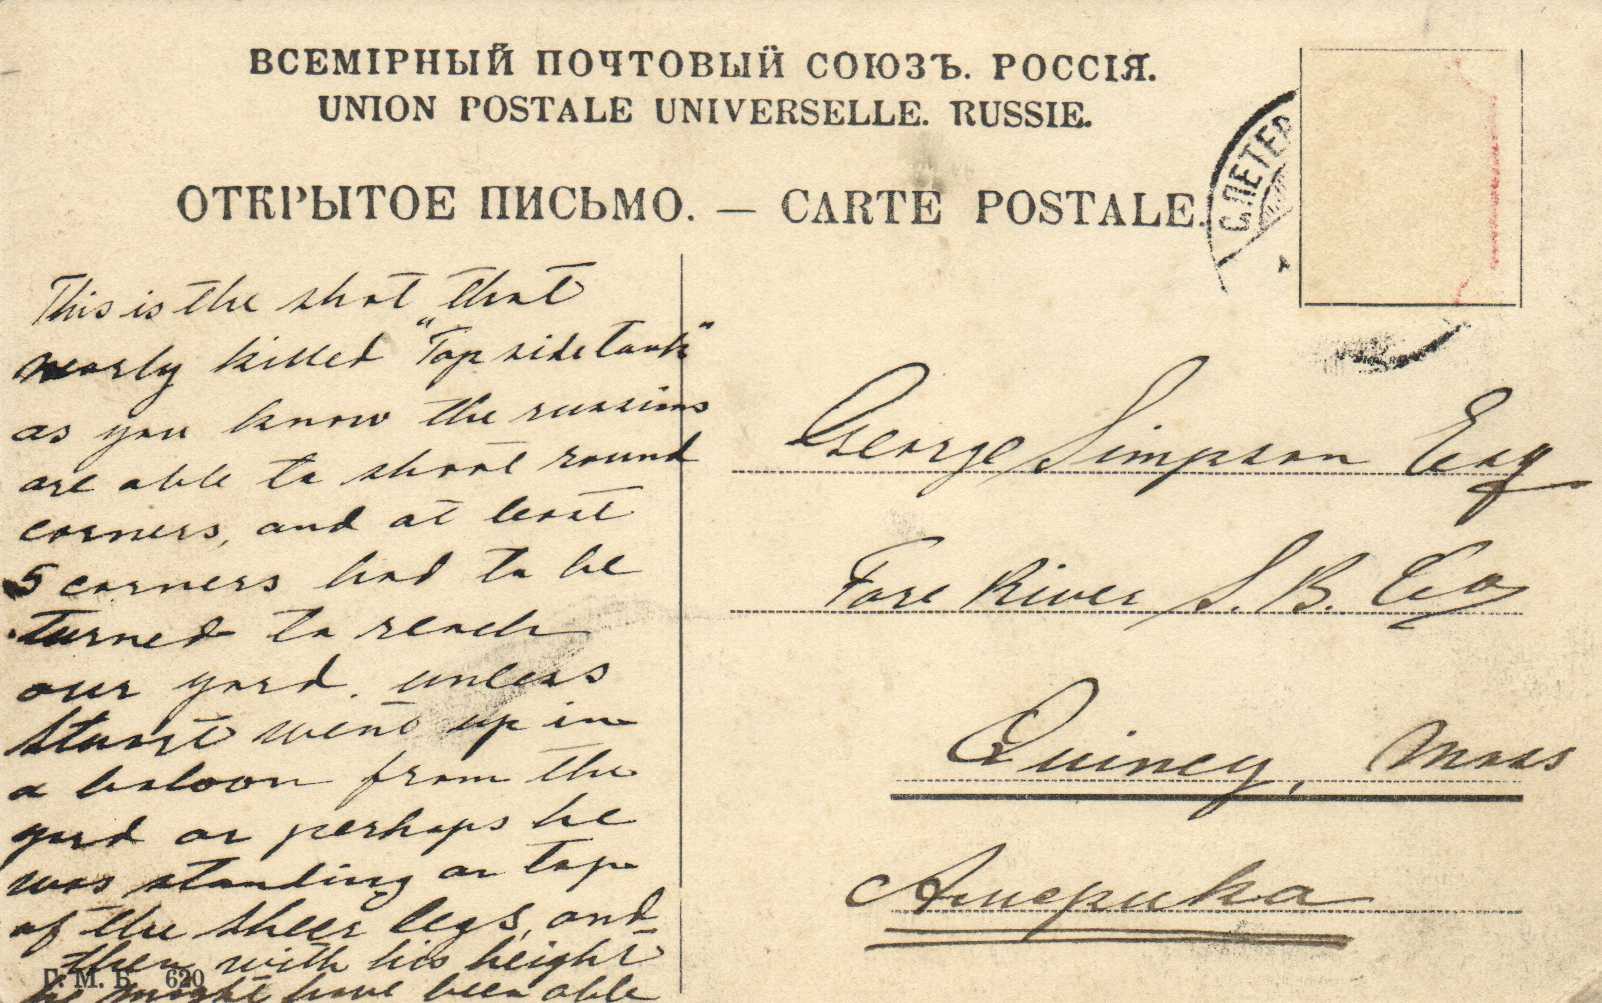 ВСЕМІРНЫЙ ПОЧТОВЫЙ СОЮЗЪ. РОССІЯ.
UNION POSTALE UNIVERSELLE. RUSSIE.
ОТКРЫТОЕ ПИСЬМО. — CARTE POSTALE.
С.ПЕТЕР
This is the shot that
nearly killed "Top side Tank"
as you know the russians
are able to shoot round
corners, and at least
5 corners had to be
turned to reach
our yard. unless
Stuart went up in
a baloon from the
yard or perhaps he
was standing on top
of the sheer legs, and
then with his height
he might have been able
Г. М. Б. 620
George Simpson Esq
Fore River S. B. Co
Quincy, Mass
Америка